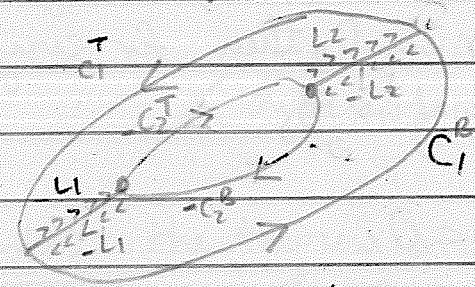 L2
C₁ᵀ
-L2
-C₂ᵀ
C₁ᴮ
L1
-C₂ᴮ
-L1